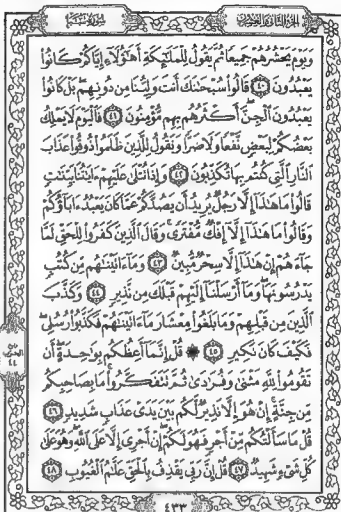 الجزء الثاني والعشرون
سورة سبإ
وَيَوْمَ يَحْشُرُهُمْ جَمِيعًا ثُمَّ يَقُولُ لِلْمَلَٰٓئِكَةِ أَهَٰٓؤُلَآءِ إِيَّاكُمْ كَانُوا۟
يَعْبُدُونَ ٤٠ قَالُوا۟ سُبْحَٰنَكَ أَنتَ وَلِيُّنَا مِن دُونِهِم بَلْ كَانُوا۟
يَعْبُدُونَ ٱلْجِنَّ أَكْثَرُهُم بِهِم مُّؤْمِنُونَ ٤١ فَٱلْيَوْمَ لَا يَمْلِكُ
بَعْضُكُمْ لِبَعْضٍ نَّفْعًا وَلَا ضَرًّا وَنَقُولُ لِلَّذِينَ ظَلَمُوا۟ ذُوقُوا۟ عَذَابَ
ٱلنَّارِ ٱلَّتِى كُنتُم بِهَا تُكَذِّبُونَ ٤٢ وَإِذَا تُتْلَىٰ عَلَيْهِمْ ءَايَٰتُنَا بَيِّنَٰتٍ
قَالُوا۟ مَا هَٰذَآ إِلَّا رَجُلٌ يُرِيدُ أَن يَصُدَّكُمْ عَمَّا كَانَ يَعْبُدُ ءَابَآؤُكُمْ
وَقَالُوا۟ مَا هَٰذَآ إِلَّآ إِفْكٌ مُّفْتَرًى وَقَالَ ٱلَّذِينَ كَفَرُوا۟ لِلْحَقِّ لَمَّا
جَآءَهُمْ إِنْ هَٰذَآ إِلَّا سِحْرٌ مُّبِينٌ ٤٣ وَمَآ ءَاتَيْنَٰهُم مِّن كُتُبٍ
يَدْرُسُونَهَا وَمَآ أَرْسَلْنَآ إِلَيْهِمْ قَبْلَكَ مِن نَّذِيرٍ ٤٤ وَكَذَّبَ
ٱلَّذِينَ مِن قَبْلِهِمْ وَمَا بَلَغُوا۟ مِعْشَارَ مَآ ءَاتَيْنَٰهُمْ فَكَذَّبُوا۟ رُسُلِى
فَكَيْفَ كَانَ نَكِيرِ ٤٥ ۞ قُلْ إِنَّمَآ أَعِظُكُم بِوَٰحِدَةٍ أَن
تَقُومُوا۟ لِلَّهِ مَثْنَىٰ وَفُرَٰدَىٰ ثُمَّ تَتَفَكَّرُوا۟ مَا بِصَاحِبِكُم
مِّن جِنَّةٍ إِنْ هُوَ إِلَّا نَذِيرٌ لَّكُم بَيْنَ يَدَىْ عَذَابٍ شَدِيدٍ ٤٦
قُلْ مَا سَأَلْتُكُم مِّنْ أَجْرٍ فَهُوَ لَكُمْ إِنْ أَجْرِىَ إِلَّا عَلَى ٱللَّهِ وَهُوَ عَلَىٰ
كُلِّ شَىْءٍ شَهِيدٌ ٤٧ قُلْ إِنَّ رَبِّى يَقْذِفُ بِٱلْحَقِّ عَلَّٰمُ ٱلْغُيُوبِ ٤٨
٤٣٣